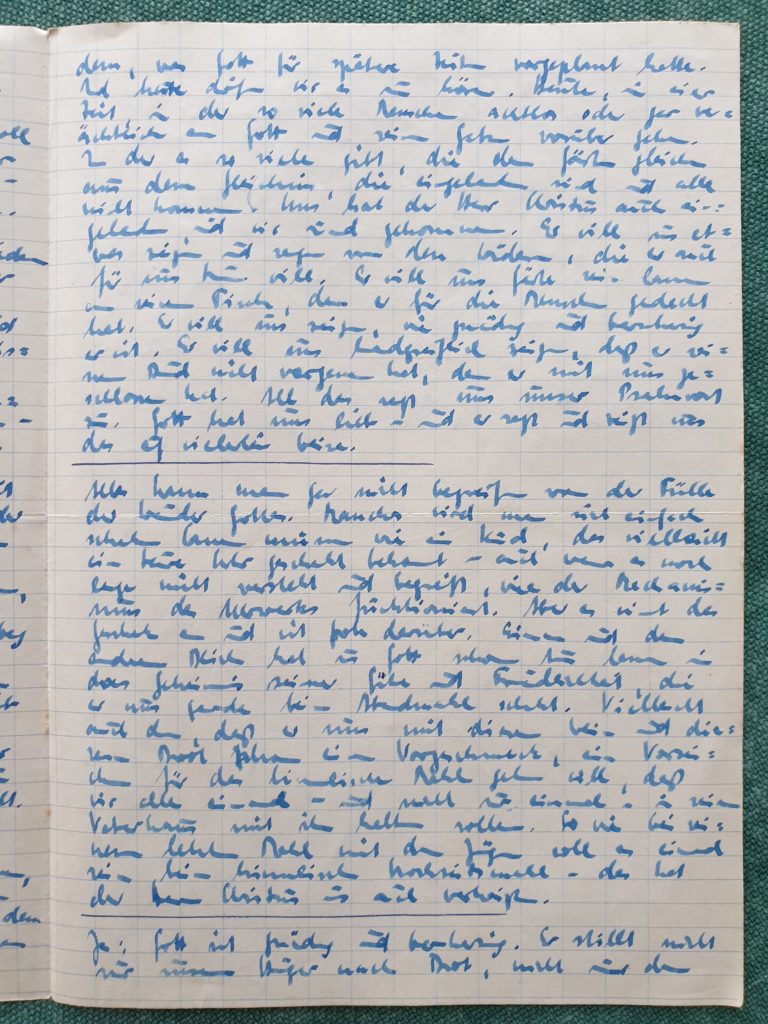 dem, was Gott für spätere Zeiten vorgeplant hatte.
Und heute dürfen wir es nun hören. Heute, in einer
Zeit, in der so viele Menschen achtlos oder gar ver=
ächtlich an Gott und seinen Gaben vorüber gehen.
In der es so viele gibt, die den Gästen gleichen
aus dem Gleichnis, die eingeladen sind und alle
nicht kommen. Uns hat der Herr Christus auch ein=
geladen, und wir sind gekommen. Er will uns et=
was zeigen und sagen von den Wundern, die er auch
für uns tun will. Er will uns Gäste sein lassen
an seinem Tisch, den er für die Menschen gedeckt
hat. Er will uns zeigen, wie gnädig und barmherzig
er ist. Er will uns handgreiflich zeigen, daß er sei=
nen Bund nicht vergessen hat, den er mit uns ge=
schlossen hat. All das sagt uns unser Psalmwort
zu. Gott hat uns lieb - und er sagt und zeigt uns
das auf vielerlei Weise.
Alles kann man gar nicht begreifen von der Fülle
der Wunder Gottes. Manches wird man sich einfach
schenken lassen müssen wie ein Kind, das vielleicht
eine teure Uhr geschenkt bekommt - auch wenn es noch
lange nicht versteht und begreift, wie der Mechanis=
mus des Uhrwerks funktioniert. Aber es nimmt das
Geschenk an und ist froh darüber. Einen und den
anderen Blick hat uns Gott schon tun lassen in
das Geheimnis seiner Güte und Freundlichkeit, die
er uns gerade beim Abendmahl schenkt. Vielleicht
auch den, daß er uns mit diesem Wein und die=
sem Brot schon einen Vorgeschmack, ein Vorzei=
chen für das himmlische Mahl geben will, daß
wir alle einmal - und nicht nur einmal - in seinem
Vaterhaus mit ihm halten sollen. So wie bei sei=
nem letzten Mahl mit den Jüngern soll es einmal
sein beim himmlischen Hochzeitsmahl - das hat
der Herr Christus uns auch verheißen.
Ja: Gott ist gnädig und barmherzig. Er stillt nicht
nur unseren Hunger nach Brot, nicht nur den